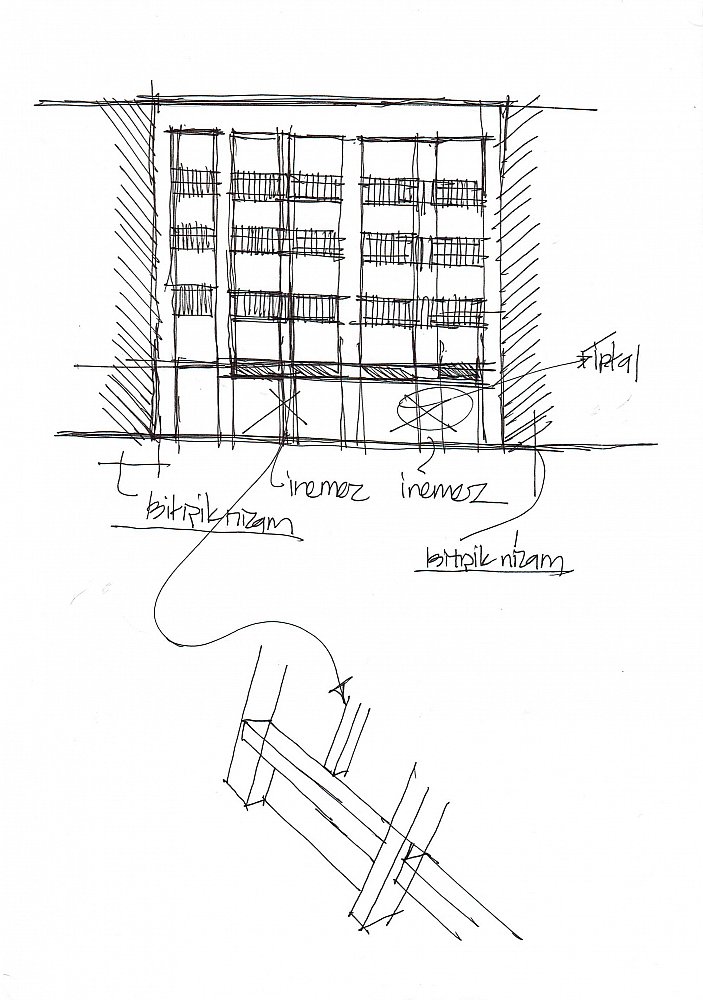 iptal
inemez inemez
bitişik nizam
bitişik nizam